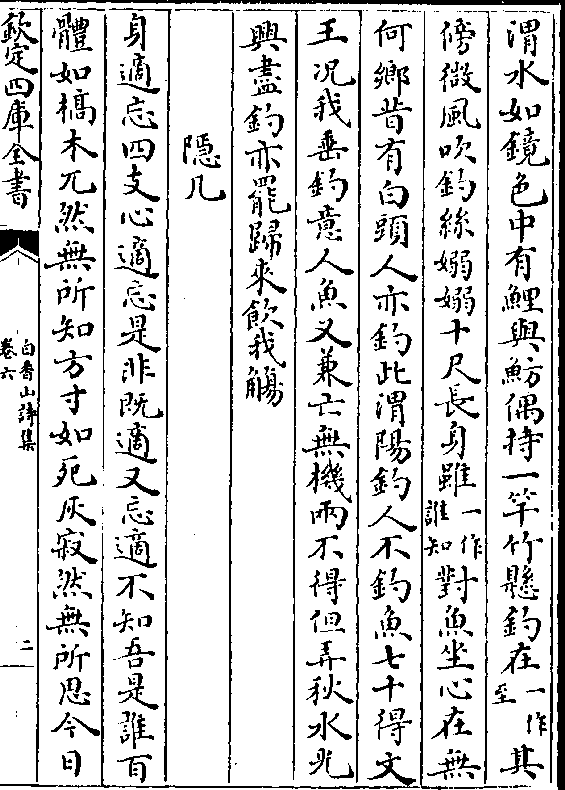 渭水如鏡色中有鯉與魴偶持一竿竹懸釣在一作至其
傍微風吹釣絲嫋嫋十尺長身雖一作誰知對魚坐心在無
何鄉昔有白頭人亦釣此渭陽釣人不釣魚七十得文
王况我垂釣意人魚又兼亡無機兩不得但弄秋水光
興盡釣亦罷歸來飲我觴
隱几
身適忘四支心適忘是非既適又忘適不知吾是誰百
體如槁木兀然無所知方寸如死灰寂然無所思今日
欽定四庫全書
白香山詩集
卷六
二